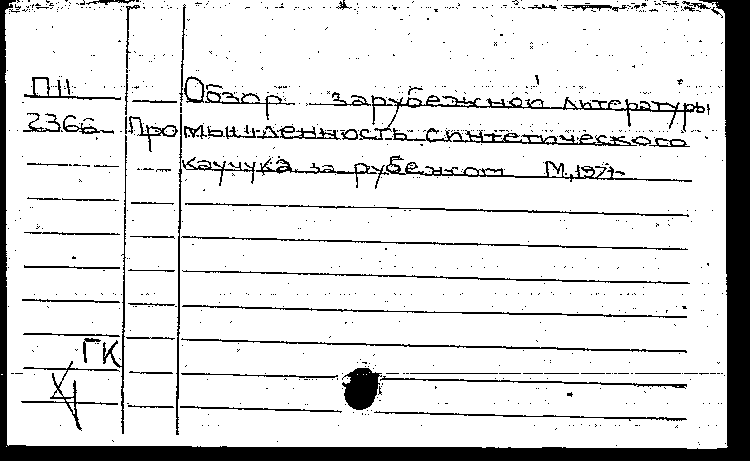 ПII Обзор зарубежной литературы
2366 Промышленность синтетического
каучука за рубежом М., 1971-
ГК